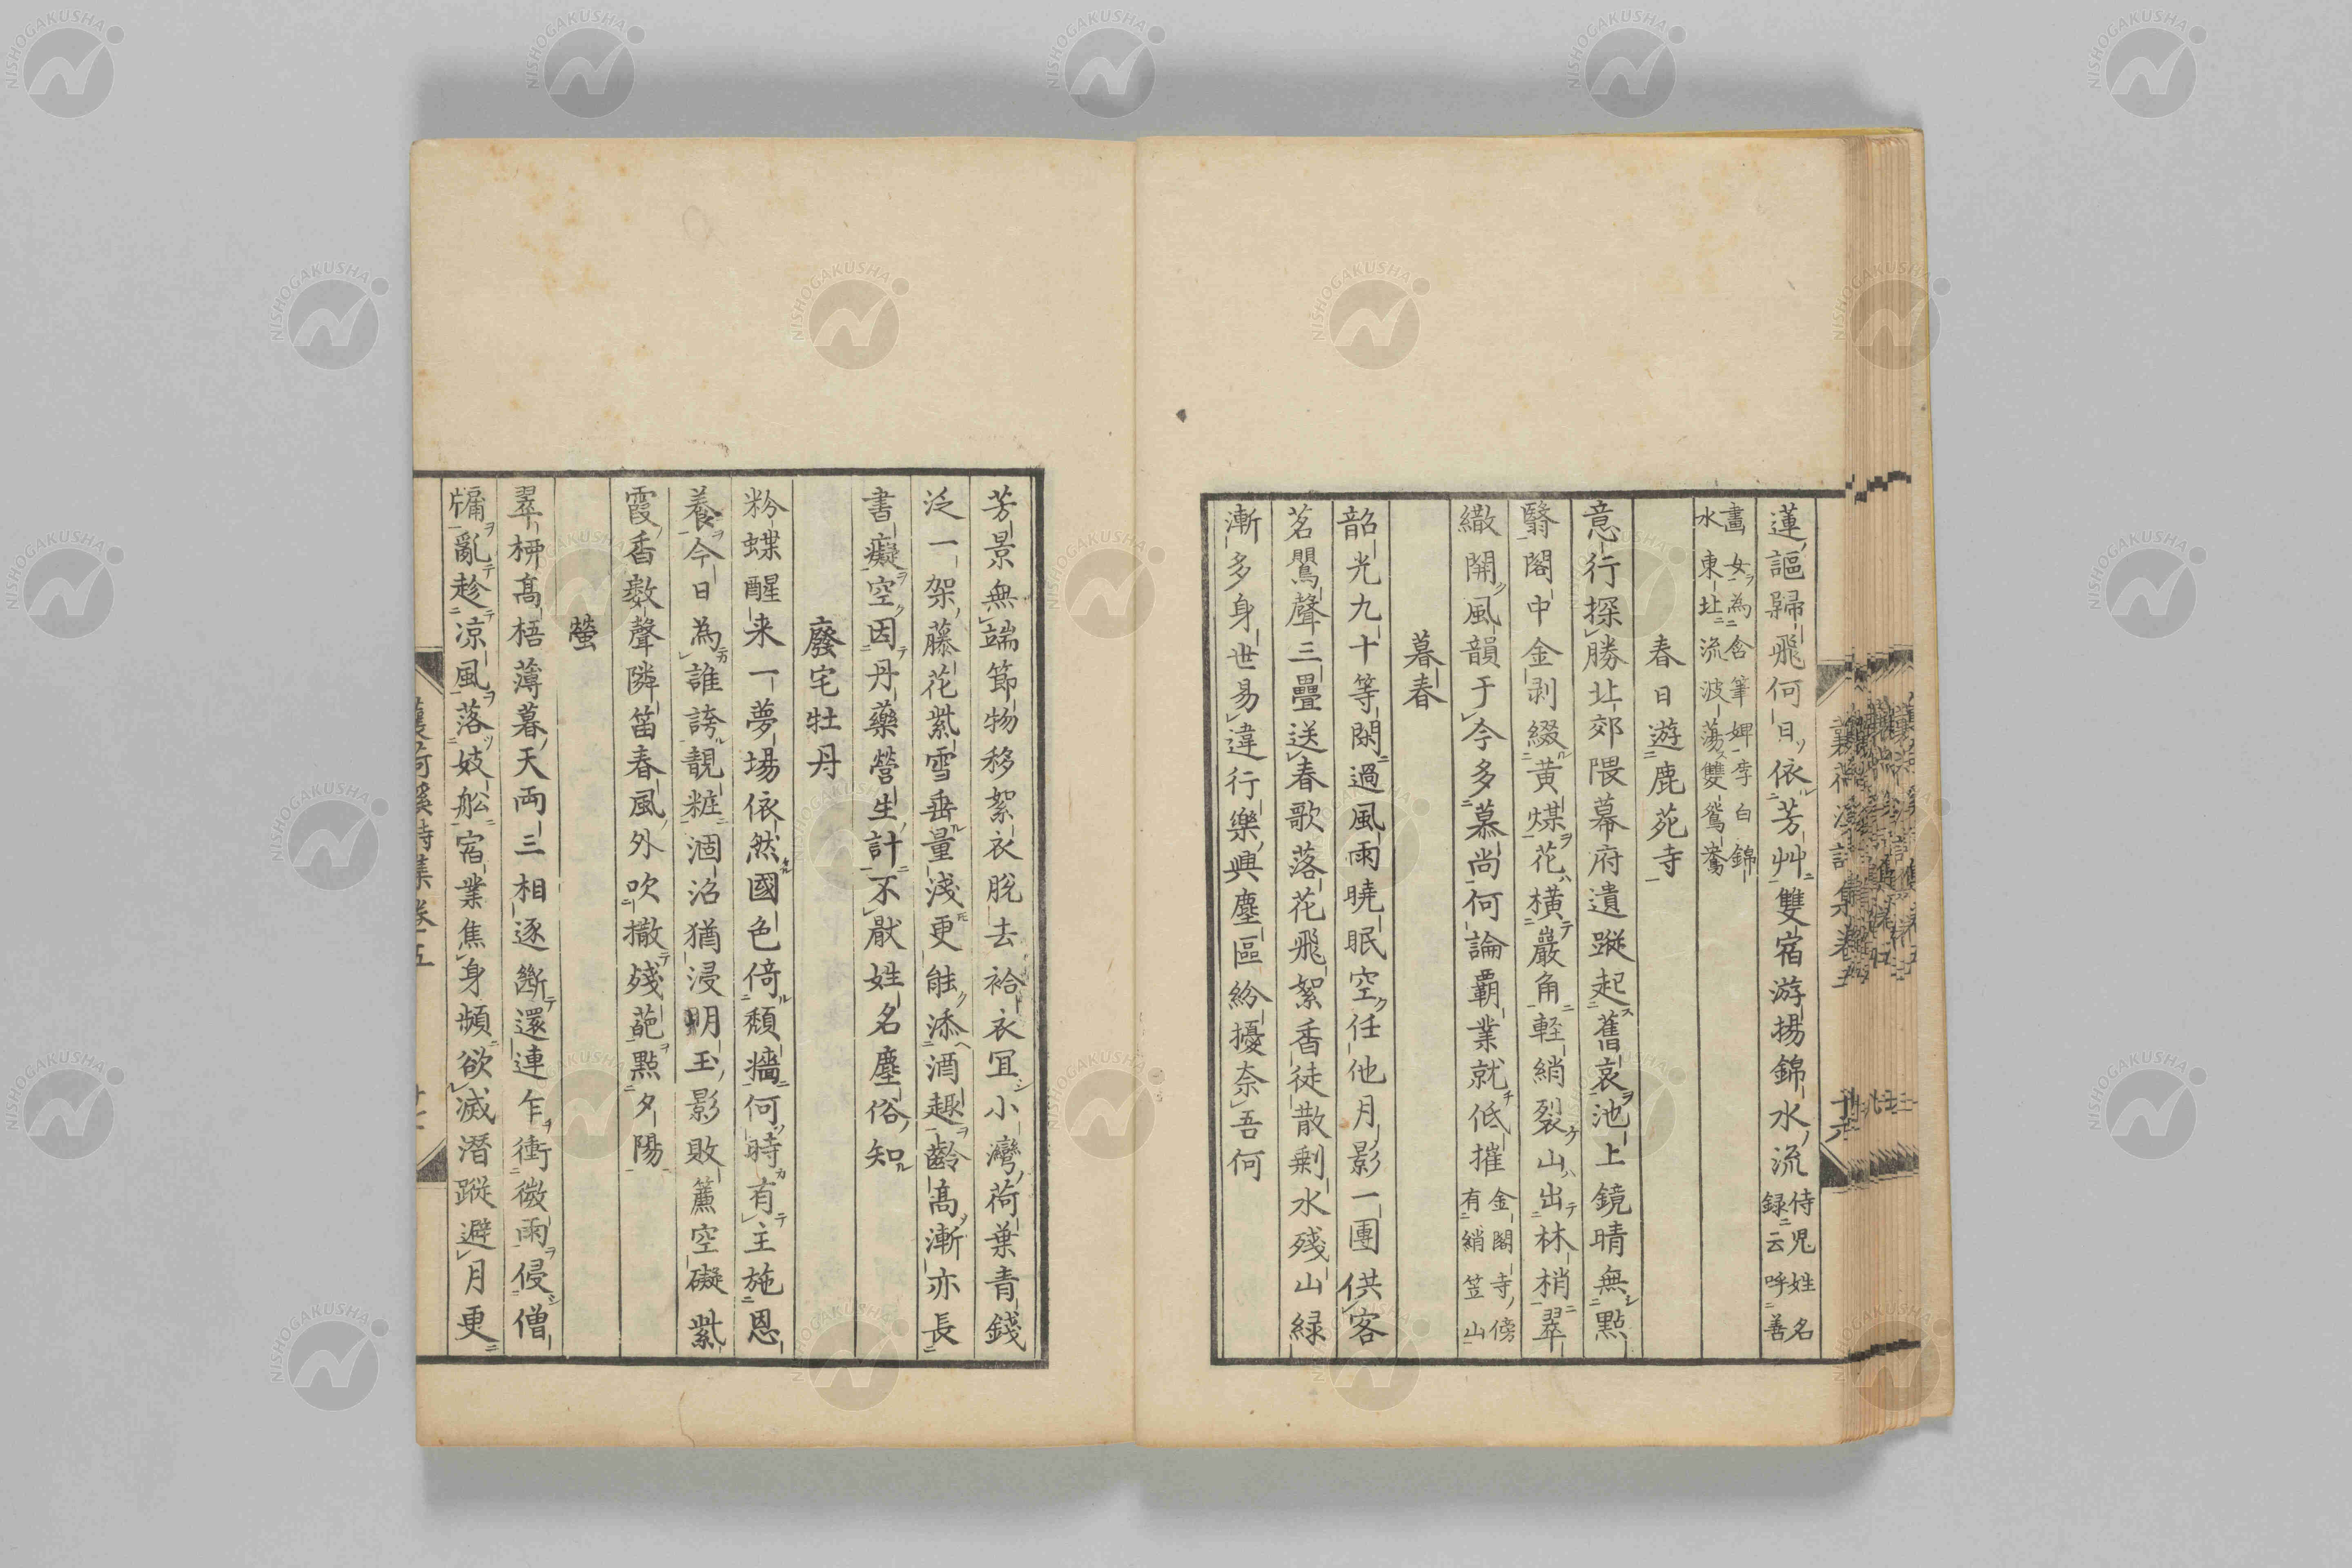 蓮謳歸飛何日依芳艸雙宿游揚錦水流侍児姓名録云呼善
畫女為含筆婢李白錦水東北流波蕩雙鴛鴦
春日遊鹿苑寺
意行探勝北郊隈幕府遺蹤起舊哀池上鏡晴無點
翳閣中金剥綴黄煤花横巖角軽綃裂山出林梢翠
繖開風韻于今多慕尚何論覇業就低摧金閣寺傍有綃笠山
暮春
韶光九十等閑過風雨曉眠空任他月影一團供客
茗鸎聲三疊送春歌落花飛絮香徒散剰水殘山緑
漸多身世易違行樂興塵區紛擾奈吾何
芳景無端節物移絮衣脱去袷衣冝小灣荷葉青錢
泛一架藤花紫雪垂量淺更能添酒趣齡高漸亦長
書癡空因丹藥營生計不厭姓名塵俗知
廢宅牡丹
粉蝶醒来一夢場依然國色倚頽牆何時有主施恩
養今日為誰誇靚粧涸沼猶浸明玉影敗簾空礙紫
霞香數聲隣笛春風外吹撒殘葩點夕陽
螢
翠栁髙梧薄暮天両三相逐斷還連乍衝微雨侵僧
牗亂趁凉風落妓舩宿業焦身頻欲滅潜蹤避月更
蘘荷溪詩集卷五